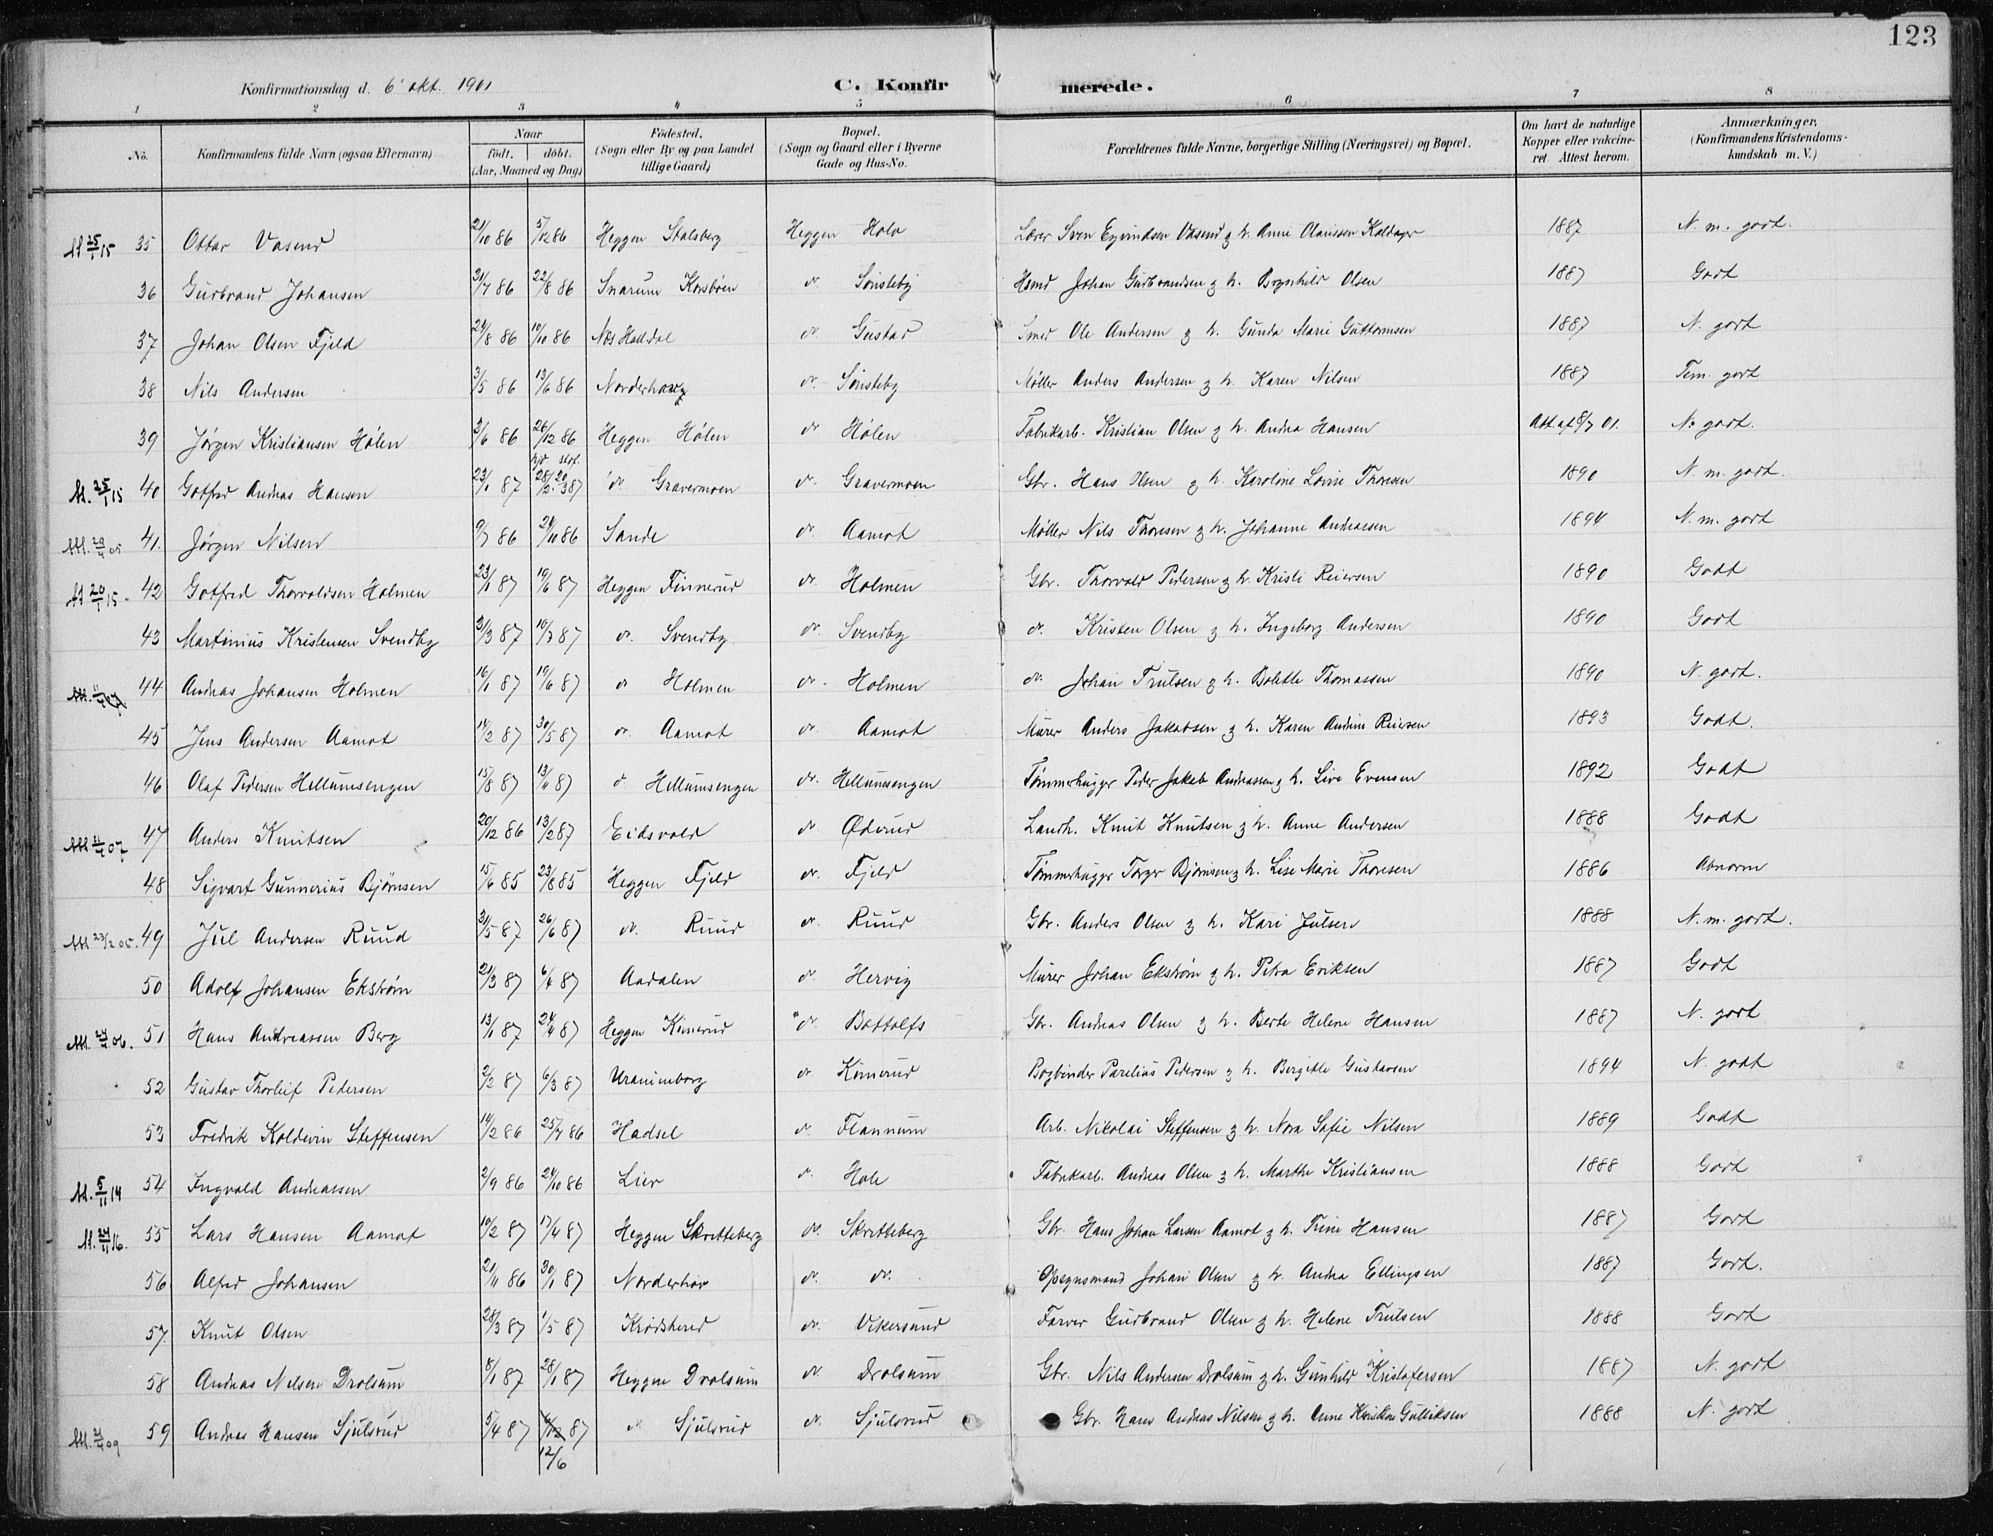 123
Konfirmationsdag d. 6' okt. 1901
C. Konfirmerede.
1 2 3 4 5 6 7 8
No. Konfirmandens fulde Navn (ogsaa Efternavn) Naar født. døbt. (Aar, Maaned og Dag) Fødested. (Sogn eller By og paa Landet tillige Gaard) Bopæl. (Sogn og Gaard eller i Byerne Gade og Hus-No. Forældrenes fulde Navne, borgerlige Stilling (Næringsvei) og Bopæl. Om havt de naturlige Kopper eller vakcineret. Attest herom. Anmærkninger. (Konfirmandens Kristendomskundskab m. V.)
M 25/1 15 35 Ottar Vasend 21/10 86 5/12 86 Heggen Stalsberg Heggen Hole Lærer Sven Eyvindsen Vasend g h. Anne Olaussen Kaldager 1887 N. m. godt.
36 Gudbrand Johansen 31/7 86 22/8 86 Snarum Korsbøen do Sønsteby Hsmd Johan Gudbrandsen g h. Bognhild Olsen 1887 Godt
37 Johan Olsen Fjeld 24/8 86 10/10 86 Næs Halldal do Gustad Smed Ole Andersen g h. Gunda Marie Guttormsen 1887 N. godt
38 Nils Andersen 3/5 86 13/6 86 Norderhov do. Sønsteby Møller Anders Andersen g h. Karen Nilsen 1887 Tem. godt
39 Jørgen Kristiansen Hølen 3/6 86 26/12 86 Heggen Hølen do Hølen Fabrikarb. Kristian Olsen g h. Andrea Hansen Att. af 8/7 01. N. godt.
M. 25/1 15 40 Gotfred Andreas Hansen 23/1 87 do Gravermoen do. Gravermoen Gbr. Hans Olsen g h. Karoline Lovise Thoresen 1890 N. m. godt.
41. Jørgen Nilsen 9/7 86 24/10 86 Sande do. Aamot Møller Nils Thoresen g h. Johanne Andreasen 1894 N. m. godt
M 20/1 15 42 Gotfred Thorvaldsen Holmen 23/1 87 19/6 87 Heggen Finnerud do. Holmen Gbr. Thorvald Pedersen g h. Kristi Reiersen 1890 Godt
43 Martinius Kristensen Svendby 31/3 87 10/7 87 do. Svendby do. Svendby do. Kristen Olsen g h. Ingeborg Andersen 1890 Godt
44 Andreas Johansen Holmen 16/1 87 19/6 87 do Holmen do. Holmen do. Johan Trulsen g h. Bolette Thomassen 1890 N. godt.
45 Jens Andersen Aamot 14/2 87 30/5 87 do. Aamot do. Aamot Murer Anders Jakobsen g h. Karen Andrine Reiersen 1893 Godt.
46 Olaf Pedersen Hellumsengen 15/8 87 13/11 87 do Hellumsengen do. Hellumsengen Tømmerhugger Peder Jakob Andreassen g h. Live Evensen 1892 Godt
47 Anders Knutsen 20/12 86 13/2 87 Eidsvold do Ødvud Landh. Knut Knutsen g h. Anne Andersen 1888 Godt
48 Sigvart Gunnerius Bjørnsen 15/6 85 23/8 85 Heggen Fjeld do. Fjeld Tømmerhugger Torger Bjørnsen g h. Lise Marie Thoresen 1886 Abnorm
M 23/2 05. 49 Jul Andersen Ruud 31/5 87 26/6 87 do. Ruud do. Ruud Gbr. Anders Olsen g h. Kari Julsen 1888 N. m. godt.
50 Adolf Johansen Ekstrøm 21/3 87 6/4 87 Aadalen do. Hervig Murer Johan Ekstrøm g h. Petra Eriksen 1887 Godt
51 Hans Andreassen Berg 13/1 87 24/4 87 Heggen Kimerud do. Bottolfs Gbr. Andreas Olsen g h. Berte Helene Hansen 1887 N. godt
52 Gustav Thorleif Petersen 2/2 87 6/3 87 Uranienborg do Kimerud Bogbinder Parelius Pedersen g h. Bergitte Gustavsen 1894 N. godt
53 Fredrik Koldevin Steffensen 14/2 86 25/7 86 Hadsel do. Flannum Arb. Nikolai Steffensen g h. Nora Sofie Nilsen 1889 Godt
M. 5/11 14 54 Ingvald Andreassen 2/9 86 24/10 86 Lier do. Hole Fabrikarb. Andreas Olsen g h. Marthe Kristiansen 1888 Godt
M. 24/11 16. 55 Lars Hansen Aamot 10/2 87 17/4 87 Heggen Skretteberg do. Skretteberg Gbr. Hans Johan Larsen Aamot g h. Trine Hansen 1887 Godt
56 Alfred Johansen 21/11 86 30/1 87 Norderhov do. do. Opsynsmand Johan Olsen g h. Andrea Ellingsen 1887 Godt.
57. Knut Olsen 28/3 87 1/5 87 Krødsherred do. Vikersund Farver Gudbrand Olsen g h. Helene Trulsen 1888 Godt
58 Andreas Nilsen Drolsum 8/1 87 28/1 87 Heggen Drolsum do. Drolsum Gbr. Nils Andersen Drolsum g h. Gunhild Kristofersen 1887 N. godt
59 Andreas Hansen Sjulsrud 5/4 87 87 12/6 do Sjulsrud do. Sjulsrud Gbr. Hans Andreas Nilsen g h. Anne Gulliksen 1888 N. godt